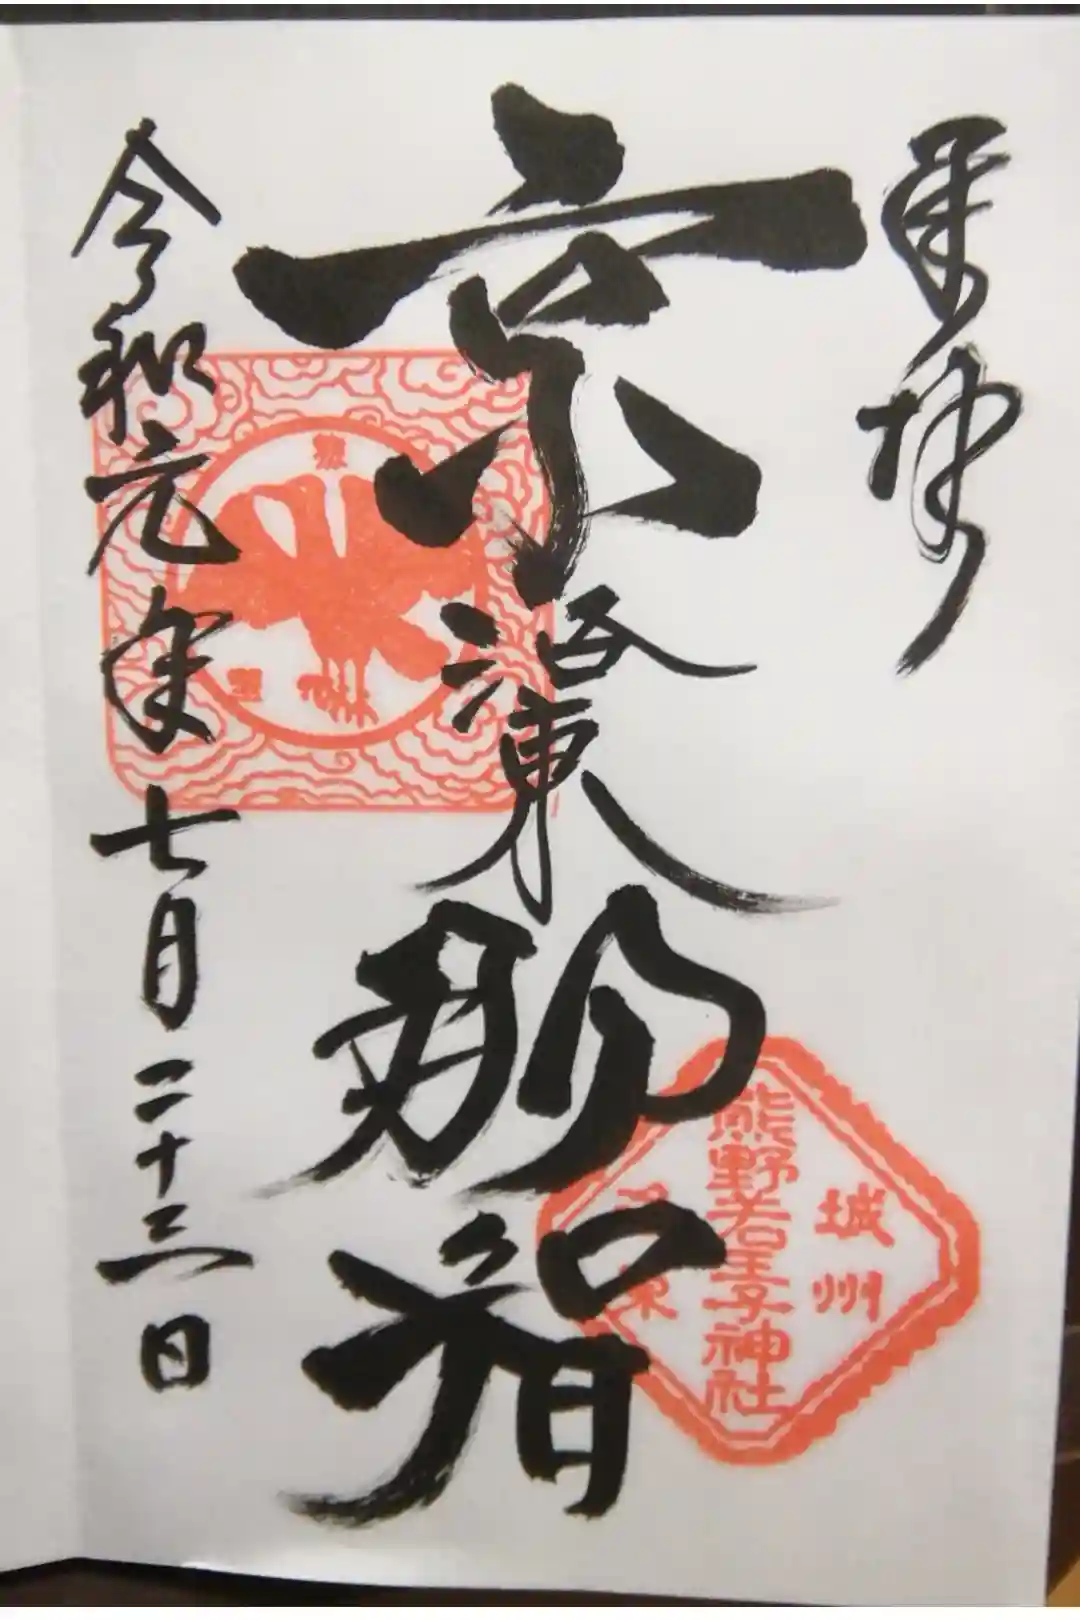 奉拝
京
洛東
那智
令和元年七月二十三日
城州
熊野若王子神社